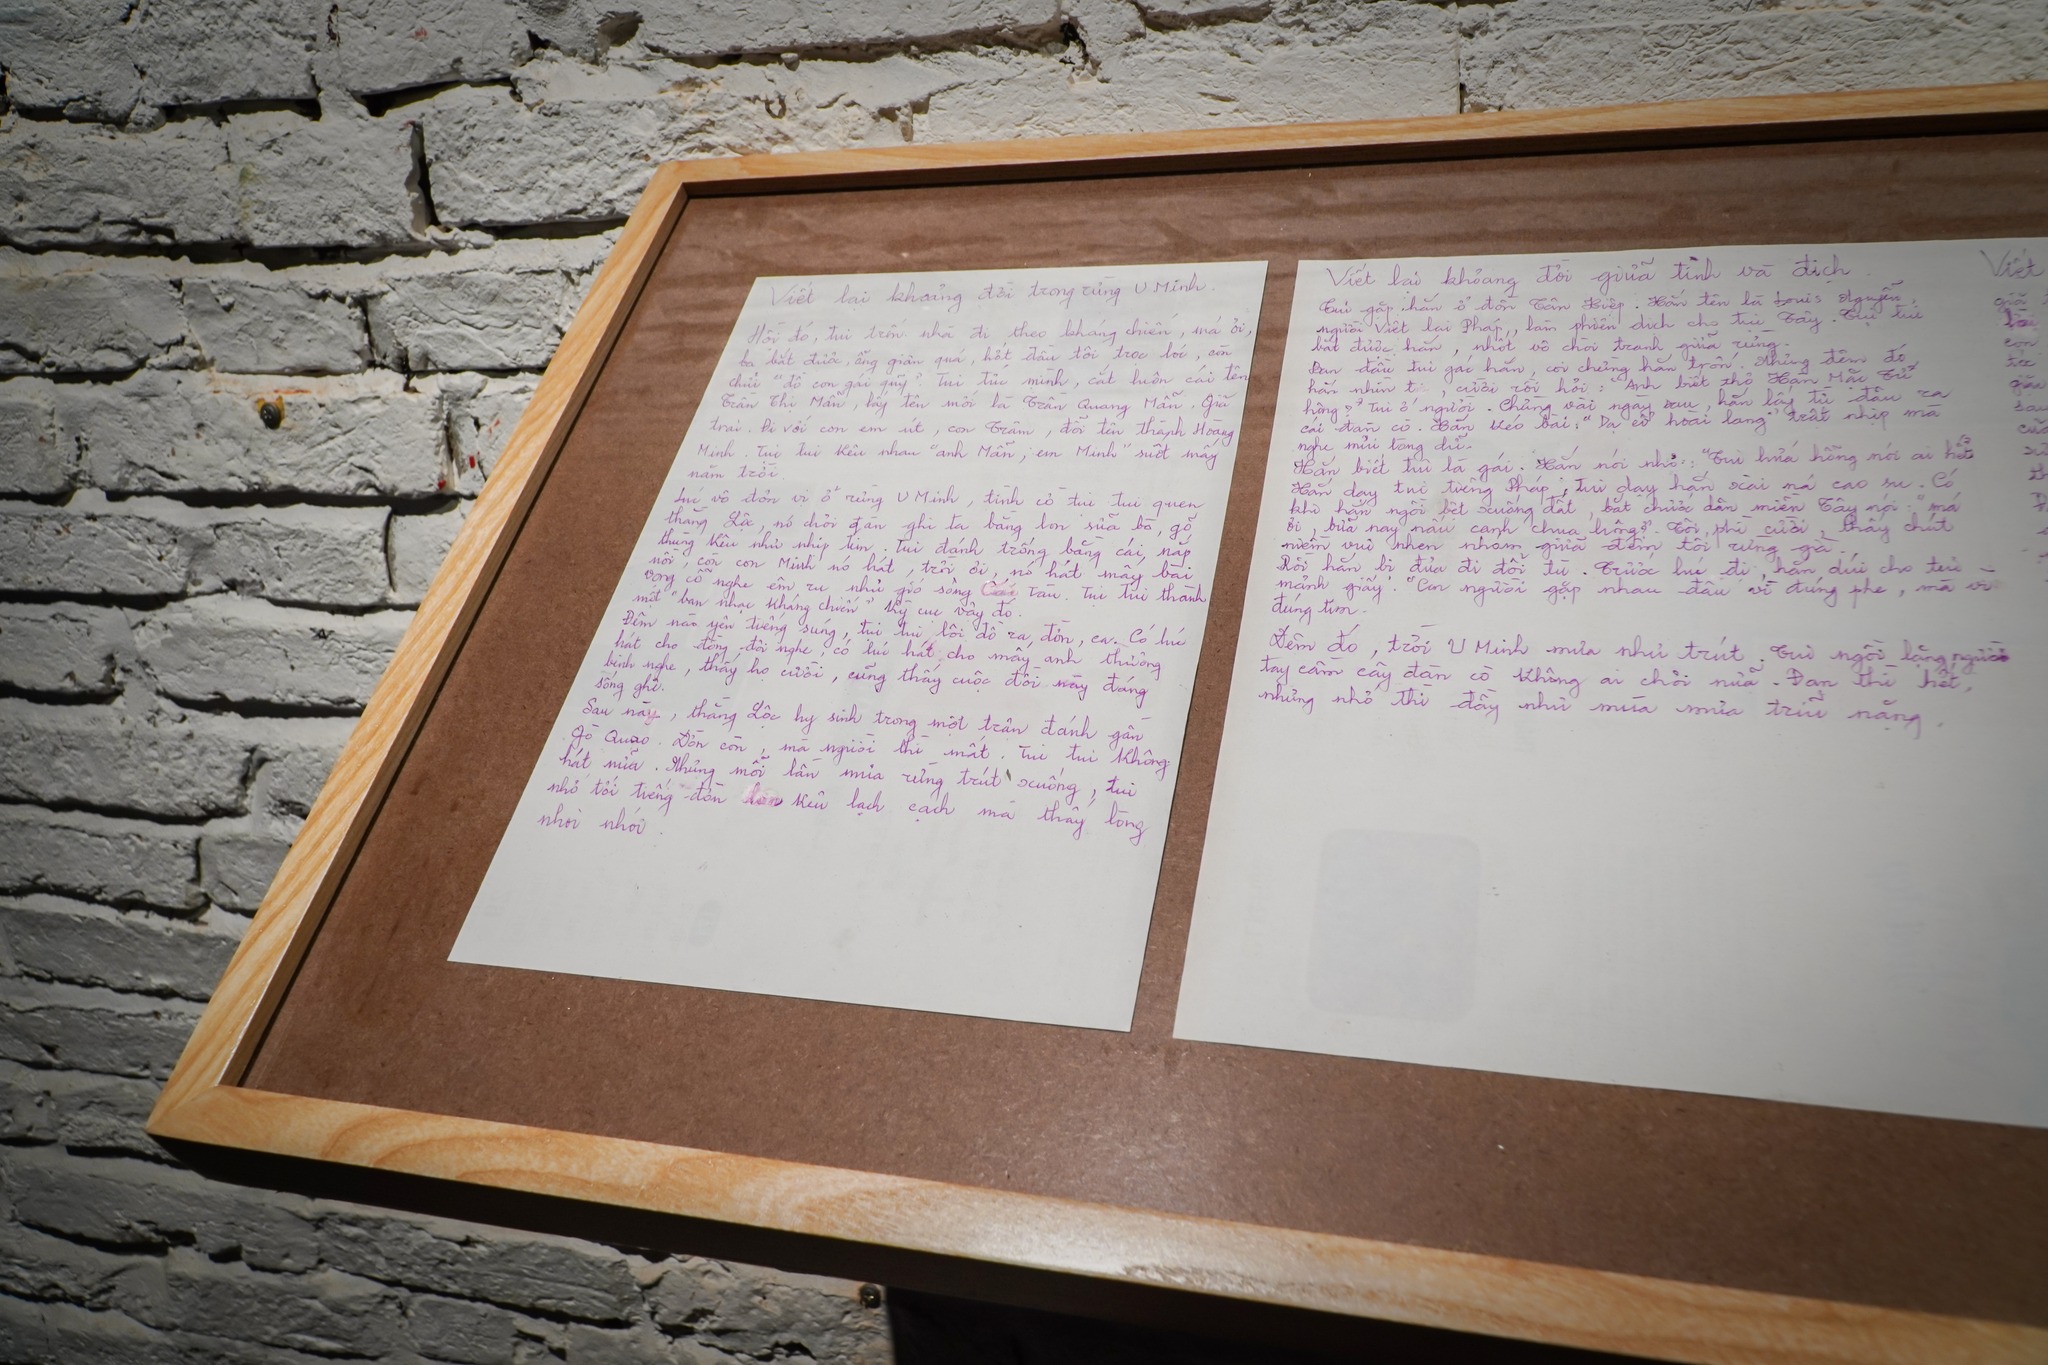 Viết lại khoảng đời trong rừng U Minh.
Hồi đó, tui trốn nhà đi theo kháng chiến, má ơi,
ba bắt được, ổng giận quá, hớt đầu tôi trọc lóc, còn
chửi "đồ con gái quỷ". Tui tức mình, cắt luôn cái tên
Trần Thị Mẫn, lấy tên mới là Trần Quang Mẫn. Giả
trai. Đi với con em út, con Trâm, đổi tên thành Hoàng
Minh. Tụi tui kêu nhau "anh Mẫn, em Minh" suốt mấy
năm trời.
Lúc vô đơn vị ở rừng U Minh, tình cờ tụi tui quen
thằng Lộc, nó chơi đàn ghi ta bằng lon sữa bò, gỗ
thùng kêu như nhịp tim. Tui đánh trống bằng cái nắp
nồi, còn con Minh nó hát, trời ơi, nó hát mấy bài
vọng cổ nghe êm ru như gió sông Cái Tàu. Tụi tui thành
một "ban nhạc kháng chiến" kỳ cục vậy đó.
Đêm nào yên tiếng súng, tụi tui lôi đồ ra, đờn, ca. Có lúc
hát cho đồng đội nghe, có lúc hát cho mấy anh thương
binh nghe, thấy họ cười, cũng thấy cuộc đời này đáng
sống ghê.
Sau này, thằng Lộc hy sinh trong một trận đánh gần
Gò Quao. Đờn còn, mà người thì mất. Tụi tui không
hát nữa. Nhưng mỗi lần mưa rừng trút xuống, tui
nhớ tới tiếng đờn lon kêu lạch cạch mà thấy lòng
nhoi nhói.
Viết lại khoảng đời giữa tình và địch.
Tui gặp hắn ở đồn Tân Hiệp. Hắn tên là Louis Nguyễn,
người Việt lai Pháp, làm phiên dịch cho tụi Tây. Tụi tui
bắt được hắn, nhốt vô chòi tranh giữa rừng.
Ban đầu tui gác hắn, coi chừng hắn trốn. Nhưng đêm đó,
hắn nhìn tui, cười rồi hỏi: "Anh biết thơ Hàn Mặc Tử
hông?" Tui ớ người. Chừng vài ngày sau, hắn lấy từ đâu ra
cái đàn cò. Hắn kéo bài: "Dạ cổ hoài lang" trật nhịp mà
nghe mủi lòng dữ.
Hắn biết tui là gái. Hắn nói nhỏ: "Tui hứa hông nói ai hết"
Hắn dạy tui tiếng Pháp, tui dạy hắn xài má cao su. Có
khi hắn ngồi bệt xuống đất, bắt chước dân miền Tây nói: "má
ơi, bữa nay nấu canh chua hông?". Tôi phì cười, thấy chút
niềm vui nhen nhóm giữa đêm tối rừng già.
Rồi hắn bị đưa đi đổi tù. Trước lúc đi, hắn dúi cho tui
mảnh giấy: "Con người gặp nhau đâu vì đúng phe, mà vì
đúng tim.
Đêm đó, trời U Minh mưa như trút. Tui ngồi lặng người
tay cầm cây đàn cò không ai chơi nữa. Đạn thì hết,
nhưng nhớ thì đầy như mùa mưa trĩu nặng.
Viết